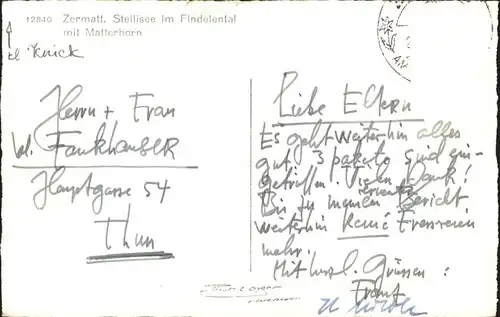 12840 Zermatt. Stellisee im Findelental
mit Matterhorn
Knick
Herrn + Frau
Fankhauser
Hauptgasse 54
Thun
Liebe Eltern
Es geht weiterhin alles
gut. 3 pakete sind ein-
getroffen. Vielen dank!
Bis zu meinem Bericht
weiterhin keine Fressereien
mehr.
Mit herzl. Grüssen:
Franz